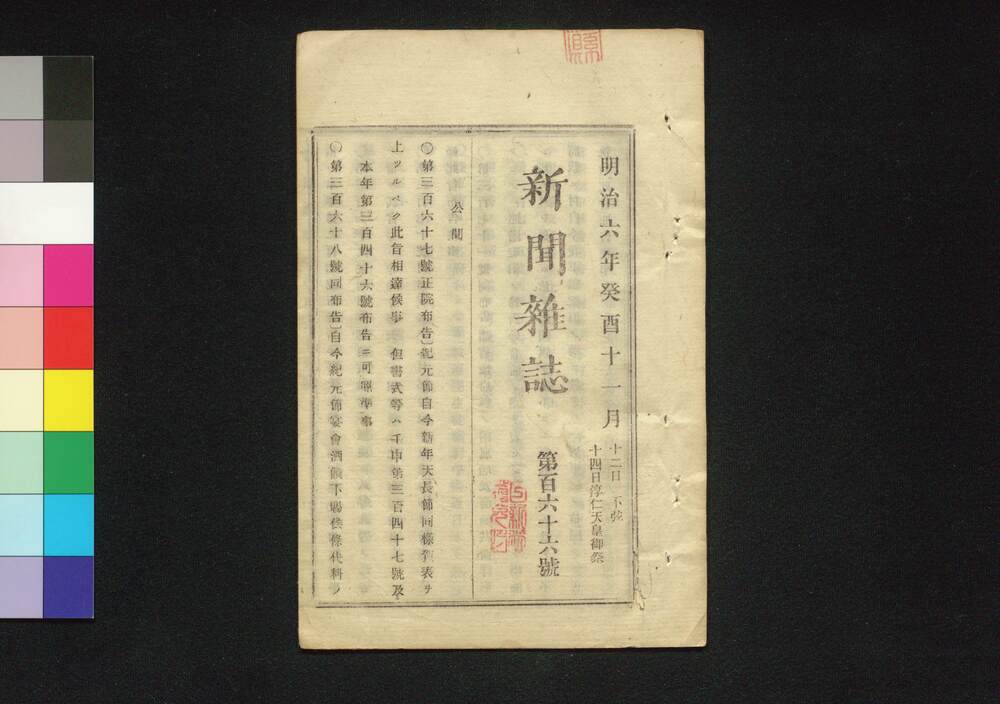 明治六年癸酉十一月
十二日 下弦
十四日淳仁天皇御祭
新聞雜誌
第百六十六號
公聞
〇第三百六十七號正院布告〕紀元節自今新年天長節同樣賀表ヲ
上ツルベク此旨相達候事 但書式等ハ壬申第三百四十七號及
本年第三百四十六號布告ニ可照準事
〇第三百六十八號同布告〕自今紀元節宴會酒饌下賜候條代料ノ